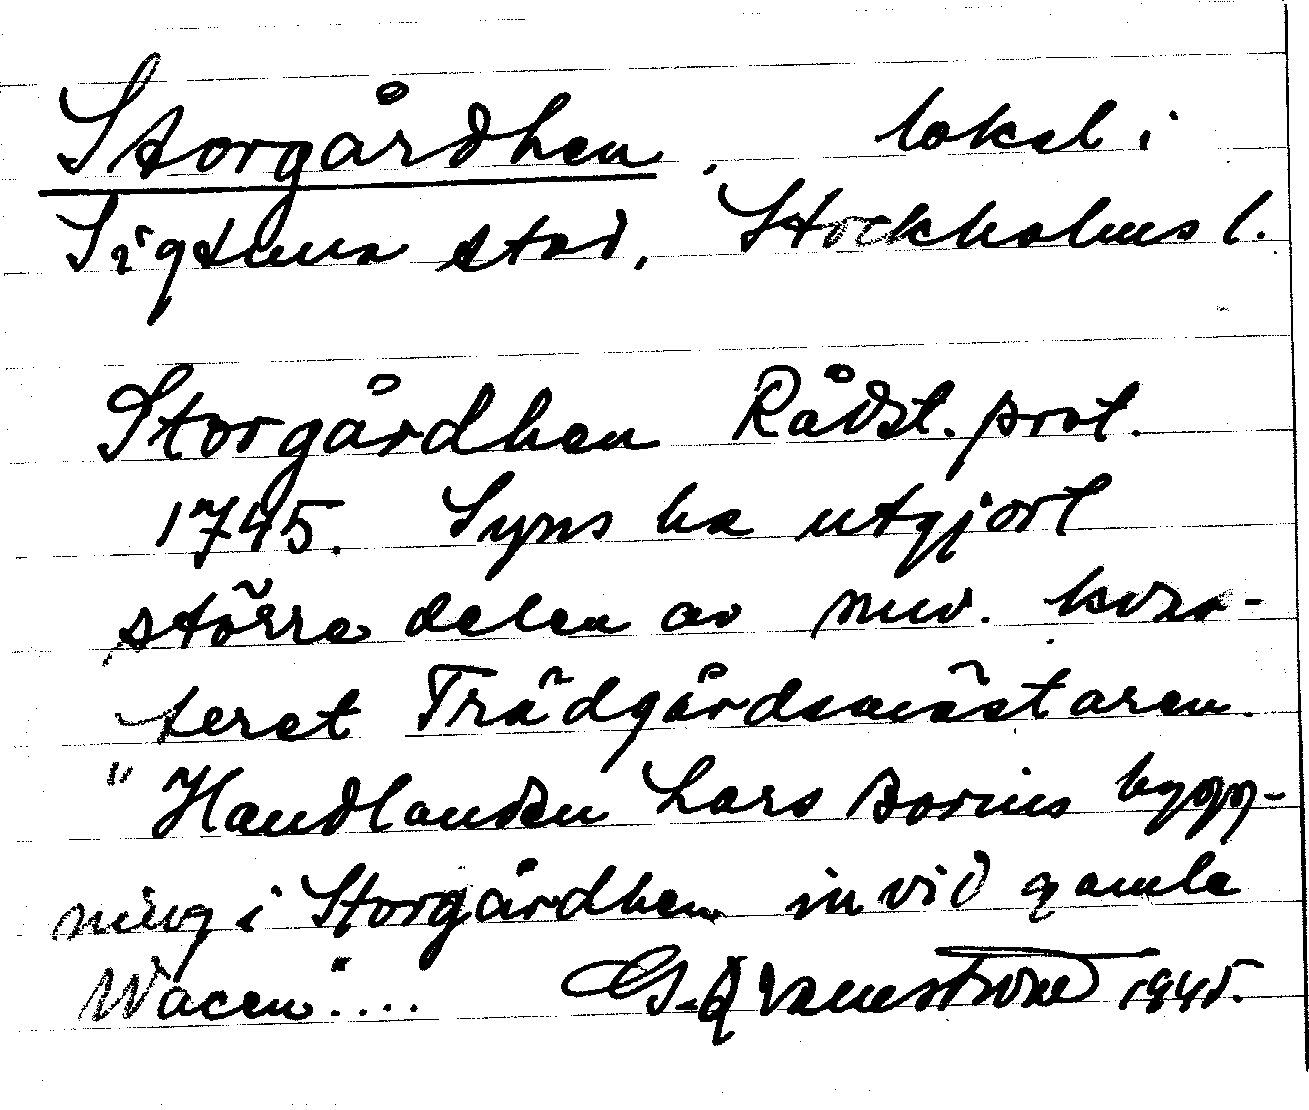 Storgårdhen, lokal i
Sigtuna stad, Stockholms l.
Storgårdhen Rådst. prot.
1745. Syns ha utgjort
större delen av nuv. kvar-
teret Trädgårdsmästaren.
"Handlanden Lars Borins bygg-
ning i Storgårdhen invid gamla
Wacen".... 1945.